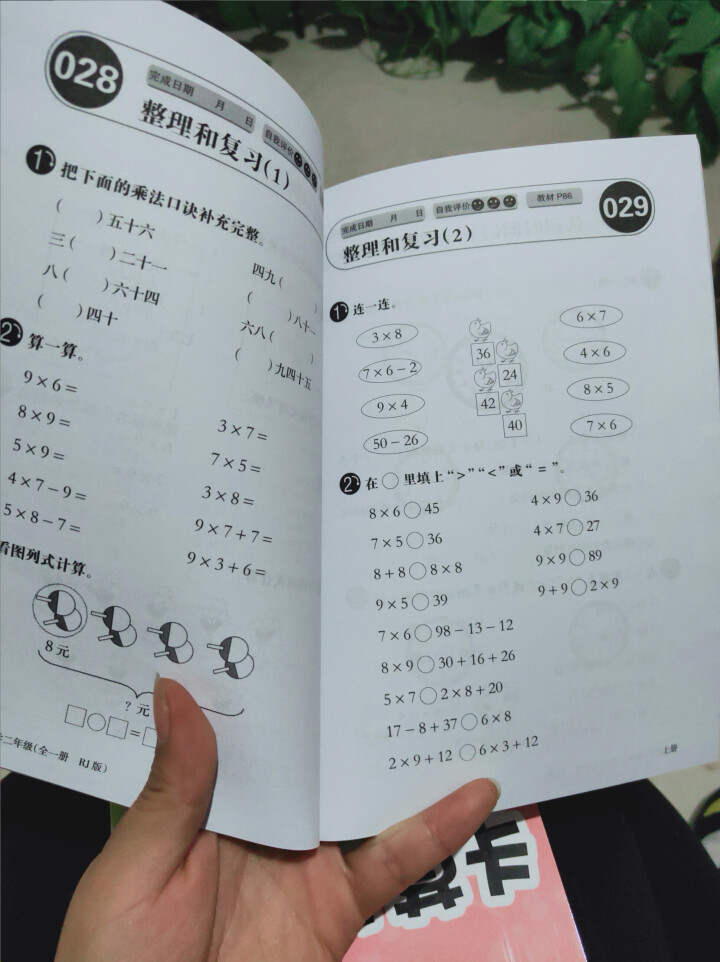 028
完成日期 月 日
自我评价
整理和复习(1)
1 把下面的乘法口诀补充完整。
( )五十六
四九( )
三( )二十一
( )八十一
八( )六十四
六八( )
( )四十
( )九四十五
2 算一算。
9×6=
3×7=
8×9=
7×5=
5×9=
3×8=
4×7-9=
9×7+7=
5×8-7=
9×3+6=
看图列式计算。
8元
?元
□○□=□
二年级(全一册 RJ版)
029
完成日期 月 日
自我评价
教材P86
整理和复习(2)
1 连一连。
3×8
36
6×7
7×6-2
24
4×6
9×4
42
8×5
50-26
40
7×6
2 在○里填上“>”“<”或“=”。
8×6○45
4×9○36
7×5○36
4×7○27
8+8○8×8
9×9○89
9×5○39
9+9○2×9
7×6○98-13-12
8×9○30+16+26
5×7○2×8+20
17-8+37○6×8
2×9+12○6×3+12
上册